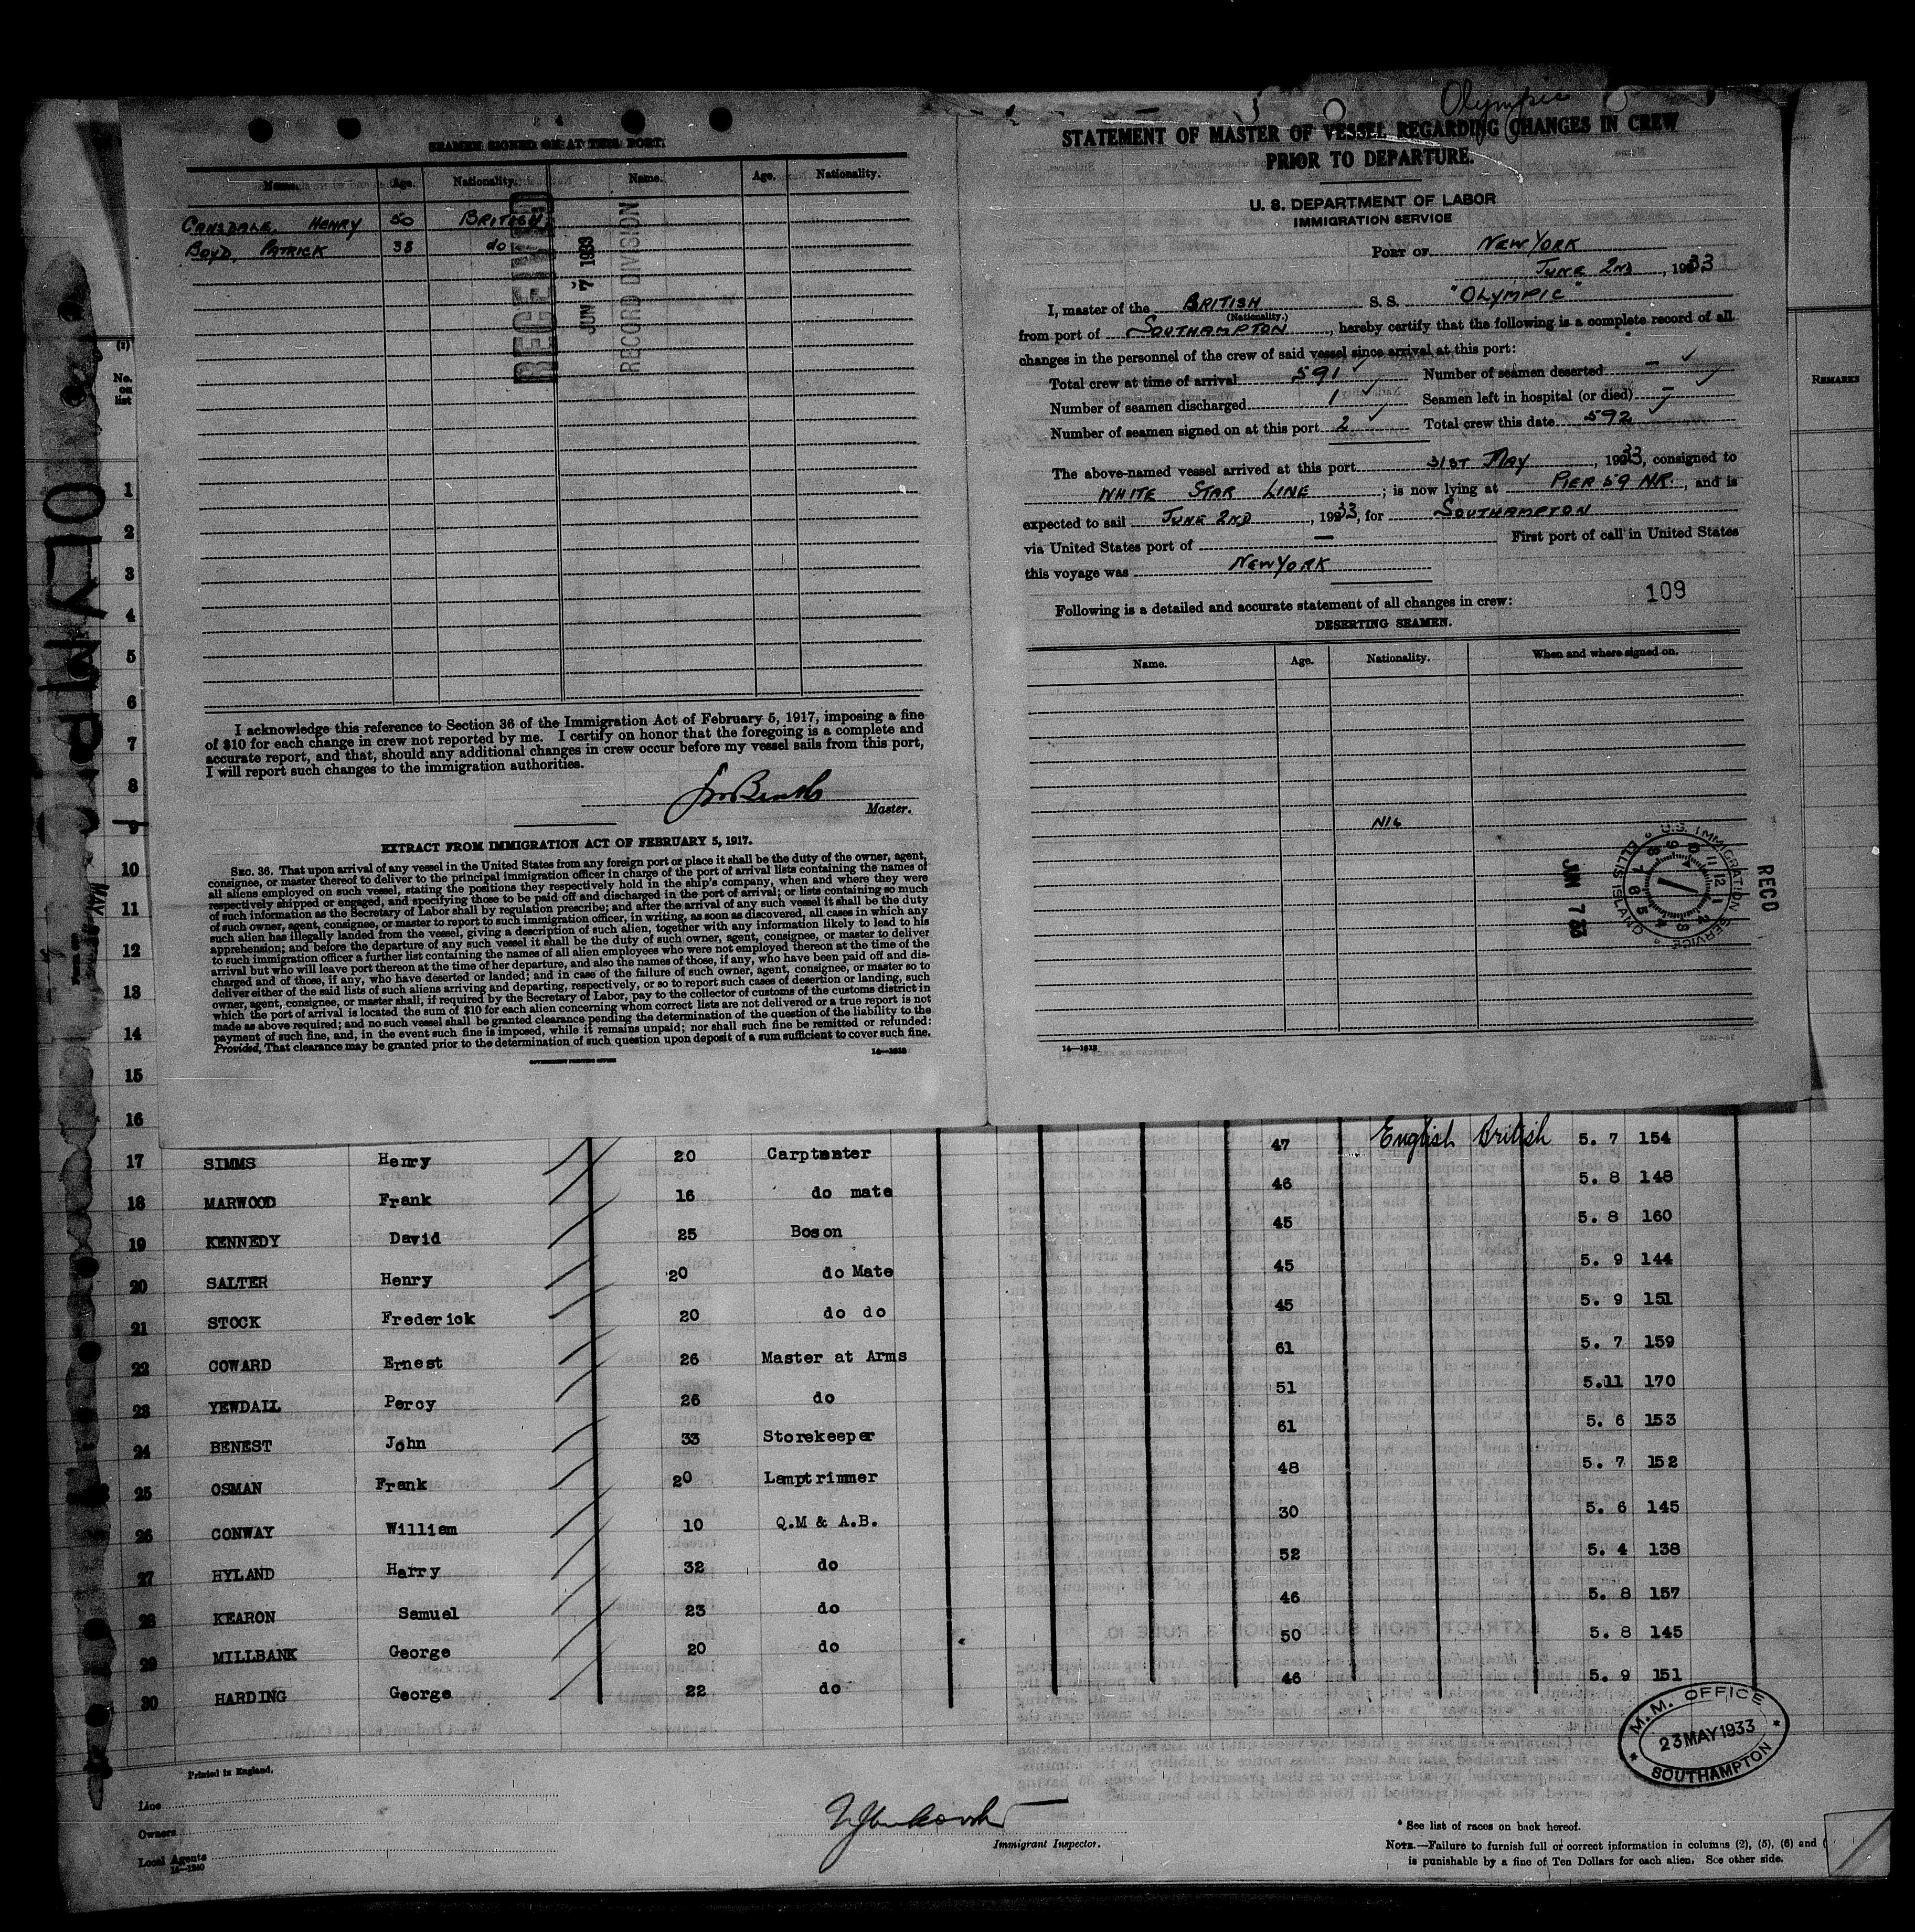 Olympic
SEAMEN SIGNED ON AT THIS PORT.
Name. Age. Nationality. Name. Age. Nationality.
HENRY 50 BRITISH
BOYD, PATRICK 38 do
RECEIVED
JUN 7 1933
RECORD DIVISION
I acknowledge this reference to Section 36 of the Immigration Act of February 5, 1917, imposing a fine
of $10 for each change in crew not reported by me. I certify on honor that the foregoing is a complete and
accurate report, and that, should any additional changes in crew occur before my vessel sails from this port,
I will report such changes to the immigration authorities.
Master.
EXTRACT FROM IMMIGRATION ACT OF FEBRUARY 5, 1917.
SEC. 36. That upon arrival of any vessel in the United States from any foreign port or place it shall be the duty of the owner, agent,
consignee, or master thereof to deliver to the principal immigration officer in charge of the port of arrival lists containing the names of
all aliens employed on such vessel, stating the positions they respectively hold in the ship's company, when and where they were
respectively shipped or engaged, and specifying those to be paid off and discharged in the port of arrival; or lists containing so much
of such information as the Secretary of Labor shall by regulation prescribe; and after the arrival of any such vessel it shall be the duty
of such owner, agent, consignee, or master to report to such immigration officer, in writing, as soon as discovered, all cases in which any
such alien has illegally landed from the vessel, giving a description of such alien, together with any information likely to lead to his
apprehension; and before the departure of any such vessel it shall be the duty of such owner, agent, consignee, or master to deliver
to such immigration officer a further list containing the names of all alien employees who were not employed thereon at the time of the
arrival but who will leave port thereon at the time of her departure, and also the names of those, if any, who have been paid off and dis-
charged and of those, if any, who have deserted or landed; and in case of the failure of such owner, agent, consignee, or master so to
deliver either of the said lists of such aliens arriving and departing, respectively, or so to report such cases of desertion or landing, such
owner, agent, consignee, or master shall, if required by the Secretary of Labor, pay to the collector of customs of the customs district in
which the port of arrival is located the sum of $10 for each alien concerning whom correct lists are not delivered or a true report is not
made as above required; and no such vessel shall be granted clearance pending the determination of the question of the liability to the
payment of such fine, and, in the event such fine is imposed, while it remains unpaid; nor shall such fine be remitted or refunded:
Provided, That clearance may be granted prior to the determination of such question upon deposit of a sum sufficient to cover such fine.
GOVERNMENT PRINTING OFFICE 14—1918
STATEMENT OF MASTER OF VESSEL REGARDING CHANGES IN CREW
PRIOR TO DEPARTURE.
U. S. DEPARTMENT OF LABOR
IMMIGRATION SERVICE
PORT OF NEW YORK
JUNE 2ND, 1933
I, master of the BRITISH S. S. "OLYMPIC"
(Nationality.)
from port of SOUTHAMPTON, hereby certify that the following is a complete record of all
changes in the personnel of the crew of said vessel since arrival at this port:
Total crew at time of arrival 591 Number of seamen deserted —
Number of seamen discharged 1 Seamen left in hospital (or died) —
Number of seamen signed on at this port 2 Total crew this date 592
The above-named vessel arrived at this port 31ST MAY, 1933, consigned to
WHITE STAR LINE; is now lying at PIER 59 N.R., and is
expected to sail JUNE 2ND, 1933, for SOUTHAMPTON
via United States port of — First port of call in United States
this voyage was NEW YORK
109
Following is a detailed and accurate statement of all changes in crew:
DESERTING SEAMEN.
Name. Age. Nationality. When and where signed on.
NIL
U.S. IMMIGRATION SERVICE ELLIS ISLAND
REC'D
JUN 7 33
14—1918
OLYMPIC
(2)
No. on list
REMARKS
1
2
3
4
5
6
7
8
9
10
11
12
13
14
15
16
17 SIMMS Henry 20 Carptenter 47 English British 5. 7 154
18 MARWOOD Frank 16 do mate 46 5. 8 148
19 KENNEDY David 25 Boson 45 5. 8 160
20 SALTER Henry 20 do Mate 45 5. 9 144
21 STOCK Frederick 20 do do 45 5. 9 151
22 COWARD Ernest 26 Master at Arms 61 5. 7 159
23 YEWDALL Percy 26 do 51 5.11 170
24 BENEST John 33 Storekeeper 61 5. 6 153
25 OSMAN Frank 20 Lamptrimmer 48 5. 7 152
26 CONWAY William 10 Q.M & A.B. 30 5. 6 145
27 HYLAND Harry 32 do 52 5. 4 138
28 KEARON Samuel 23 do 46 5. 8 157
29 MILLBANK George 20 do 50 5. 8 145
30 HARDING George 22 do 46 5. 9 151
M.M. OFFICE
23 MAY 1933
SOUTHAMPTON
Printed in England.
Line
Owners
Local Agents
14—1240
Immigrant Inspector.
* See list of races on back hereof.
NOTE.—Failure to furnish full or correct information in columns (2), (5), (6) and (
is punishable by a fine of Ten Dollars for each alien. See other side.